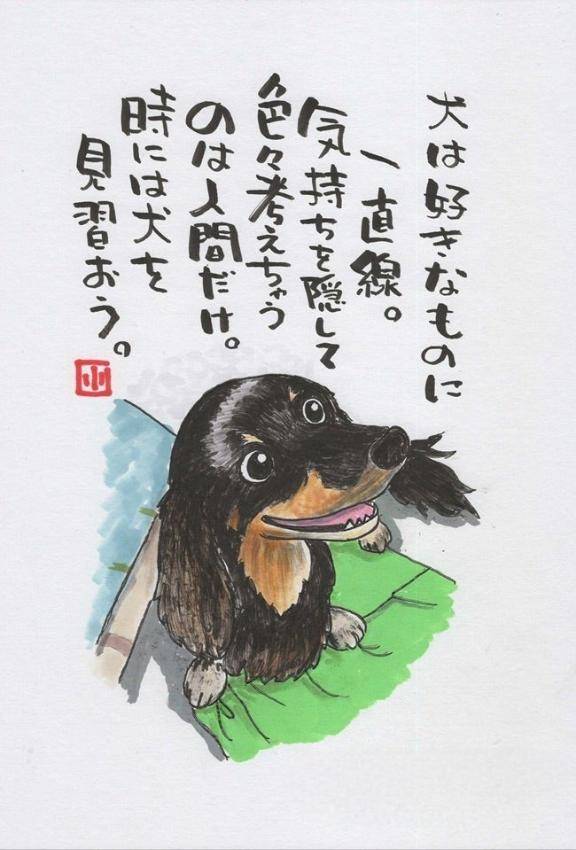 犬は好きなものに
一直線。
気持ちを隠して
色々考えちゃう
のは人間だけ。
時には犬を
見習おう。